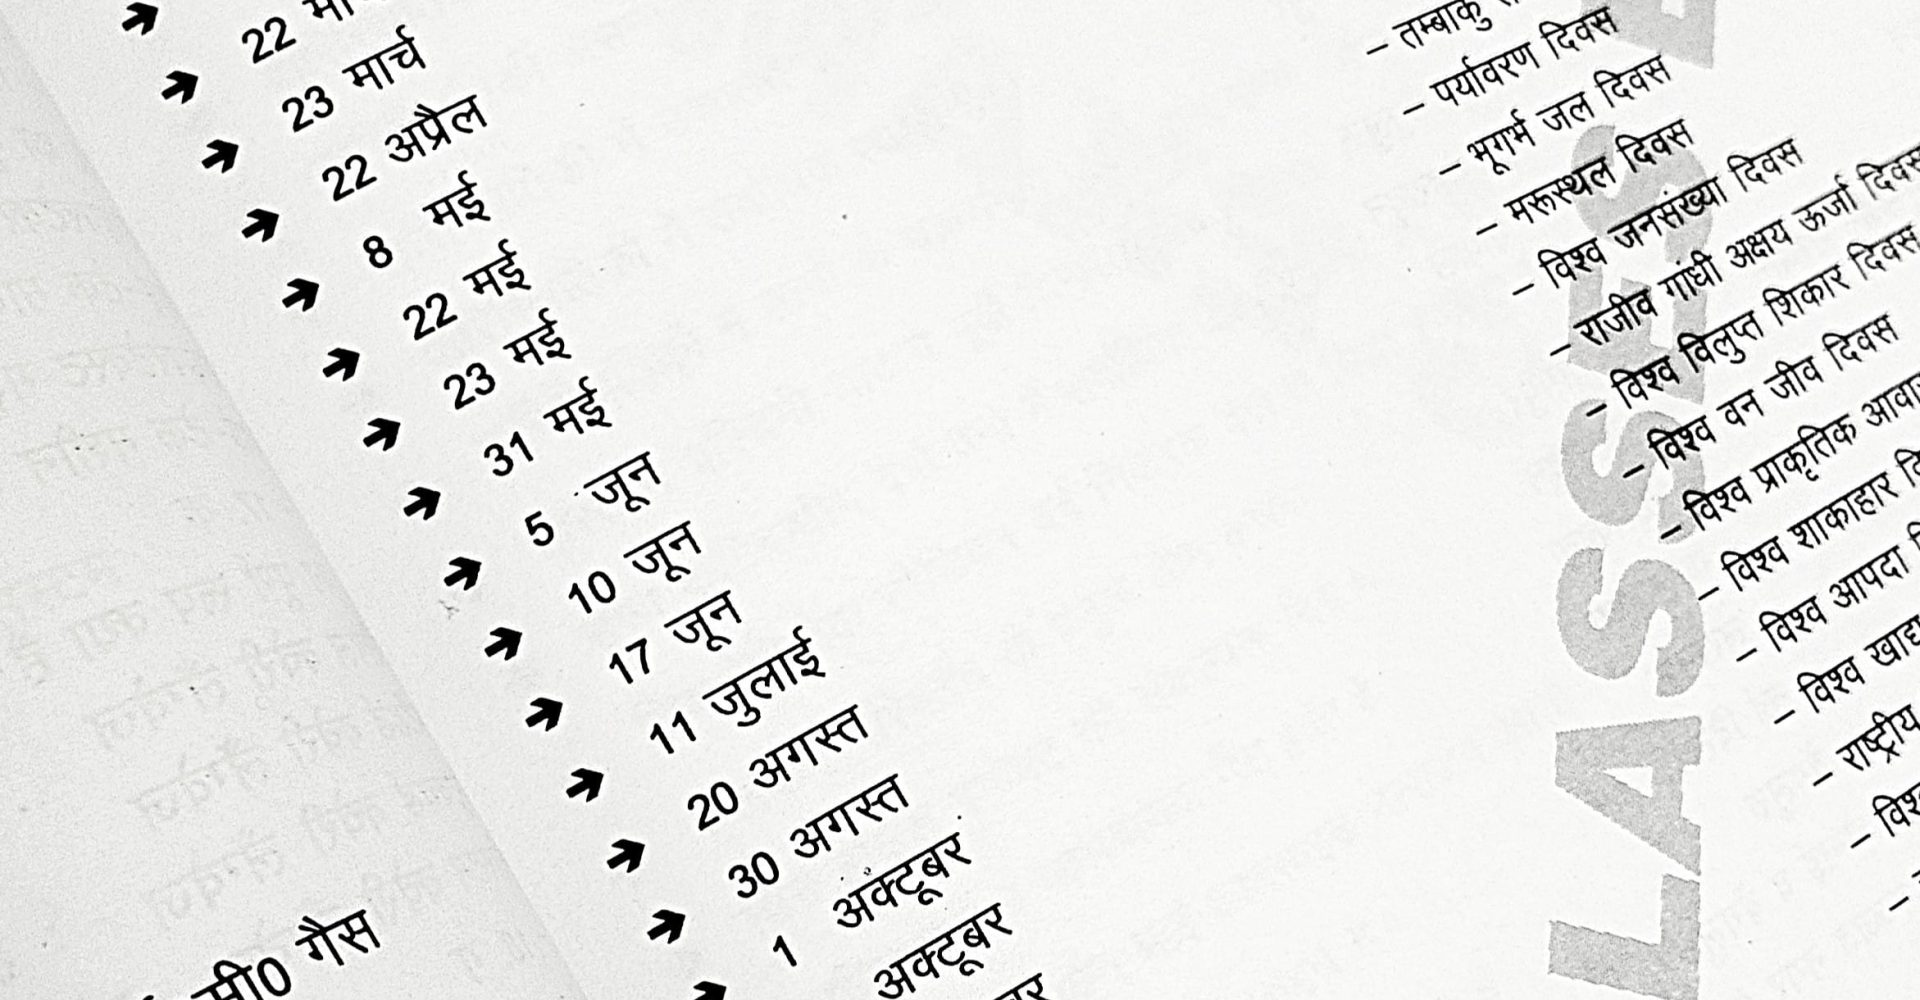 22
23 मार्च
22 अप्रैल
8 मई
22 मई
23 मई
31 मई
5 जून
10 जून
17 जून
11 जुलाई
20 अगस्त
30 अगस्त
1 अक्टूबर
अक्टूबर
– तम्बाकु
– पर्यावरण दिवस
– भूगर्भ जल दिवस
– मरूस्थल दिवस
– विश्व जनसंख्या दिवस
– राजीव गांधी अक्षय ऊर्जा दिवस
– विश्व विलुप्त शिकार दिवस
– विश्व वन जीव दिवस
– विश्व प्राकृतिक
– विश्व शाकाहार
– विश्व आपदा
– विश्व खाद्य
– राष्ट्रीय
गैस
LASSES